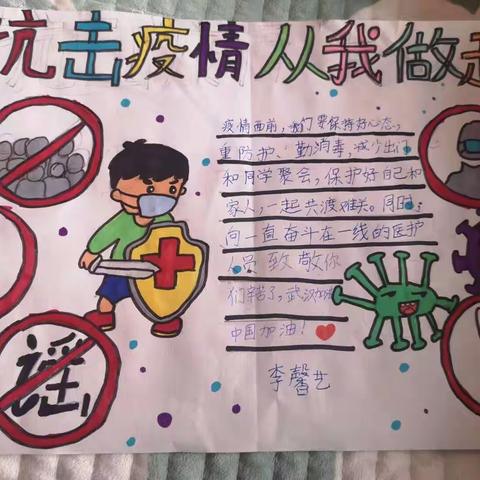 抗击疫情从我做起
疫情面前，我们要保持好心态，
重防护、勤消毒，减少出门
和同学聚会，保护好自己和
家人，一起共渡难关。同时，
向一直奋斗在一线的医护
人员致敬你
们辛苦了，武汉加油
中国加油！
李馨艺
谣